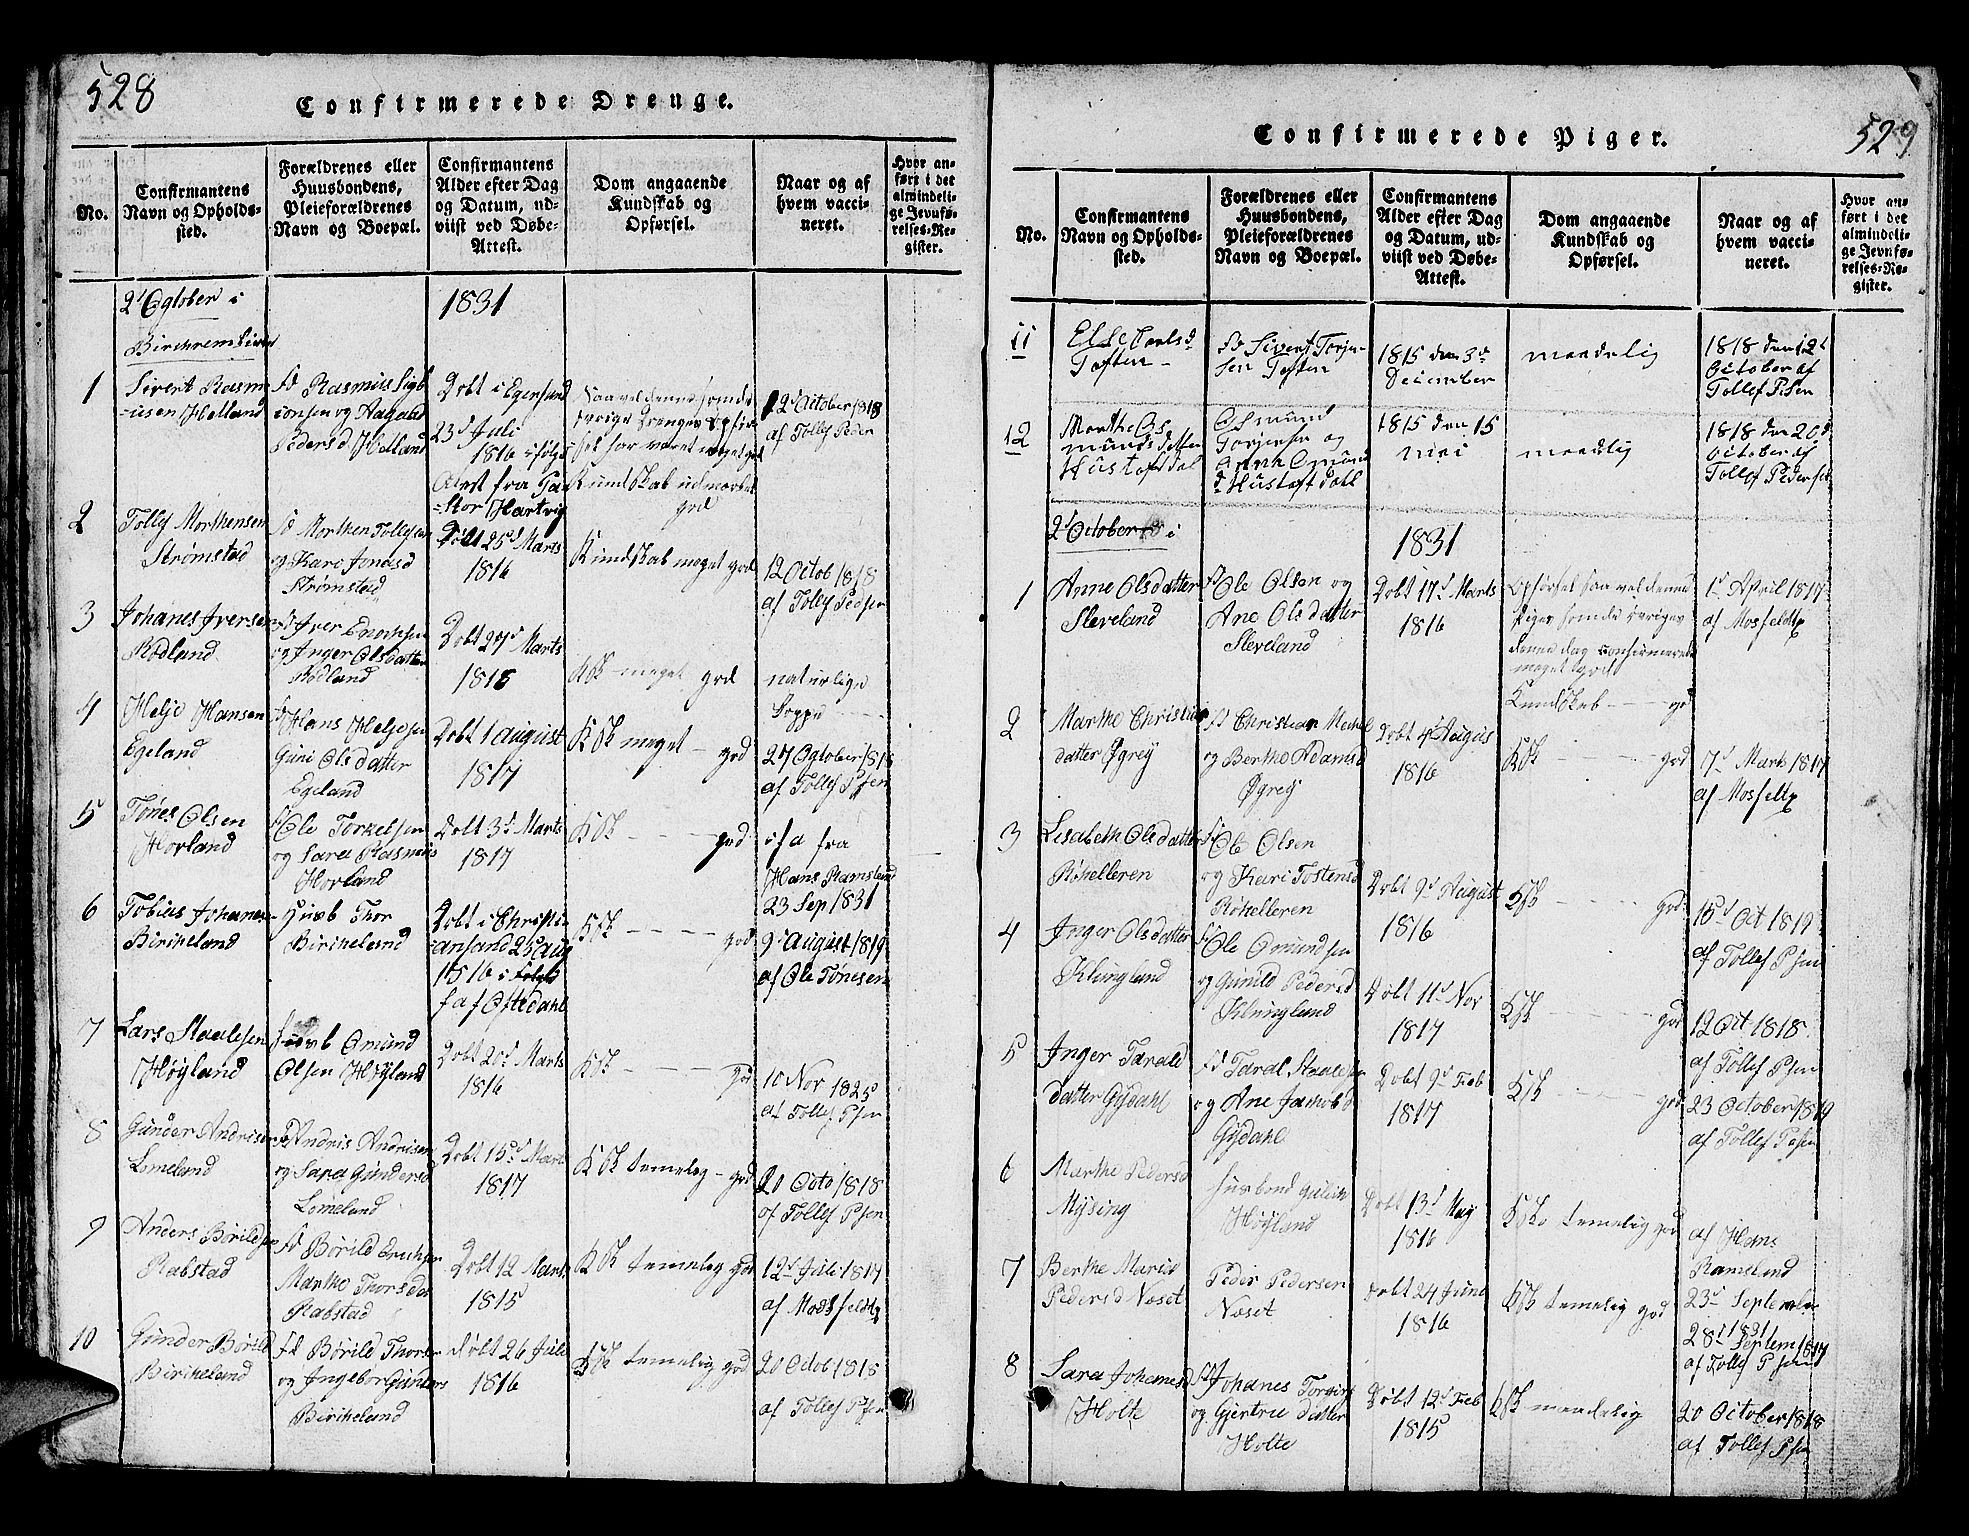 528
Confirmerede Drenge.
No.
Confirmantens
Navn og Opholds-
sted.
Forældrenes eller
Huusbondens,
Pleieforældrenes
Navn og Boepæl.
Confirmantens
Alder efter Dag
og Datum, ud-
viist ved Døbe-
Attest.
Dom angaaende
Kundskab og
Opførsel.
Naar og af
hvem vacci-
neret.
Hvor an-
ført i det
almindeli-
ge Jevnfø-
relses-Re-
gister.
2d Ogtober i
1831
1
Sivert Rasm
-usen Helland
Fd Rasmus Sigb
iorsen og Aagaat
Peders d Helland
Dobt i Egersund
23d Juli
1816 i følge
Atest fra Pa
-stor Hartvig
Saavel denne som de
øvrige Drenges Opfør
sel har været meget god
Kundskab udmærket
god
12 October 1818
af Tollef Peder
2
Tollef Morthensen
Strømstad
Fd Morthen Tollefsen
og Kare Jonasd
Strømstad
Døbt 25d Marts
1816
Kundskab meget god
12 Octob 1818
af Tollef Pedsen
3
Johanes Iversen
Rødland
Fd Iver Enochsen
og Inger Olsdatter
Rødland
Dobt 27d Marts
1816
KSK meget god
naturlige
Kopper
4
Helje Hansen
Egeland
Fd Hans Heljesen
Guni Olsdatter
Egeland
Dobt 1 August
1817
KSK meget - god
27 Ogtober 1818
af Tollef Psen
5
Tønes Olsen
Hovland
Fd Ole Torkelsen
og Sara Rasmus
Hovland
Dobt 3d Marts
1817
KSK - - - god
i f a fra
Hans Ramsland
23 Sep 1831
6
Tobias Johanes-
Birkeland
Husb Thor
Birkeland
Dobt i Christi-
ansand 25d Aug
1816 i følge
f a f Oftedahl
KSK - - - god
9d August 1819
af Ole Tønesen
7
Lars Staalesen
Høyland
Husb Omund
Olsen Høyland
Dobt 20d Marts
1816
KSK - - - god
10 Nov 1825
af Tollef Psen
8
Gunder Andrisen
Lomeland
Fd Andris Andrisen
og Sara Gundersd
Lomeland
Dobt 15d Mart
1817
KSK temelig - god
20 Octo 1818
af Tollef Psen
9
Anders Børildsen
Rabstad
Fd Børild Erichsen
Marthe Thorsda
Rabstad
Dobt 12 Marts
1815
KSK temelig god
12d Juli 1817
af Mosfeldt
10
Gunder Børild
Birkeland
Fd Børild Thors
og Ingebor Gunders
Birkeland
døbt 26 Juli
1816
KSK temelig god
20 Octob 1818
af Tollef Psen
529
Confirmerede Piger.
No.
Confirmantens
Navn og Opholds-
sted.
Forældrenes eller
Huusbondens,
Pleieforældrenes
Navn og Boepæl.
Confirmantens
Alder efter Dag
og Datum, ud-
viist ved Døbe-
Attest.
Dom angaaende
Kundskab og
Opførsel.
Naar og af
hvem vacci-
neret.
Hvor an-
ført i det
almindeli-
ge Jevnfø-
relses-Re-
gister.
11
Else Carlsd
Toften
Fd Sivert Torje-
sen Toften
1815 den 3d
December
maadelig
1818 den 12t
October af
Tollef Psen
12
Marthe Os
munds datter
Hustoftdal
Osmund
Torjesen og
Anna Omund
d Hustoft dahl
1815 den 15
mei
maadlig
1818 den 20d
October af
Tollef Peders
2d October i
1831
1
Anne Olsdatter
Sleveland
Fd Ole Olsen og
Ane Olsdatter
Sleveland
Dobt 17d Marts
1816
Opførsel saavel denne
Piges som de øvriges
denne dag confirmerede
meget god
Kundskab - - god
1d April 1817
af Mosfeldt
2
Marthe Christia
datter Øgrey
Fd Christian Mechel
og Berthe Adamsd
Øgrey
Dobt 4d Augus
1816
KSK - - - god
7d Marts 1817
af Mosfeldt
3
Lisabeth Olsdatter
Røkelleren
Fd Ole Olsen
og Kari Tostensd
Røkelleren
Dobt 9d August
1816
KSK - - - god
15d Oct 1819
af Tollef Psen
4
Inger Olsdatter
Klungland
Fd Ole Omundsen
og Gunild Pedersd
Klungland
Døbt 11d Nov
1817
KSK - - - god
12 Oct 1818
af Tollef Psen
5
Inger Tarald
datter Gysdahl
Fd Taral Staalesen
og Ane Jacobsd
Gysdahl
Dobt 9d Feb
1817
KSK - - - god
23 October 1819
af Tollef Psen
6
Marthe Pedersd
Mysing
husbond
Høyland
Dobt 13d May
1816
KSK temelig god
af Hans
Ramsland
23d September
1831
7
Berthe Maria
Pedersd Næset
Peder Pedersen
Næset
Dobt 24 June
1816
KSK temelig god
28d Septem 1817
af Tollef Psen
8
Sara Johanesd
Holte
Fd Johanes Torgers
og Gjertru datter
Holte
Døbt 12d Feb
1815
KSK maadelig
20 October 1818
af Tollef Psen